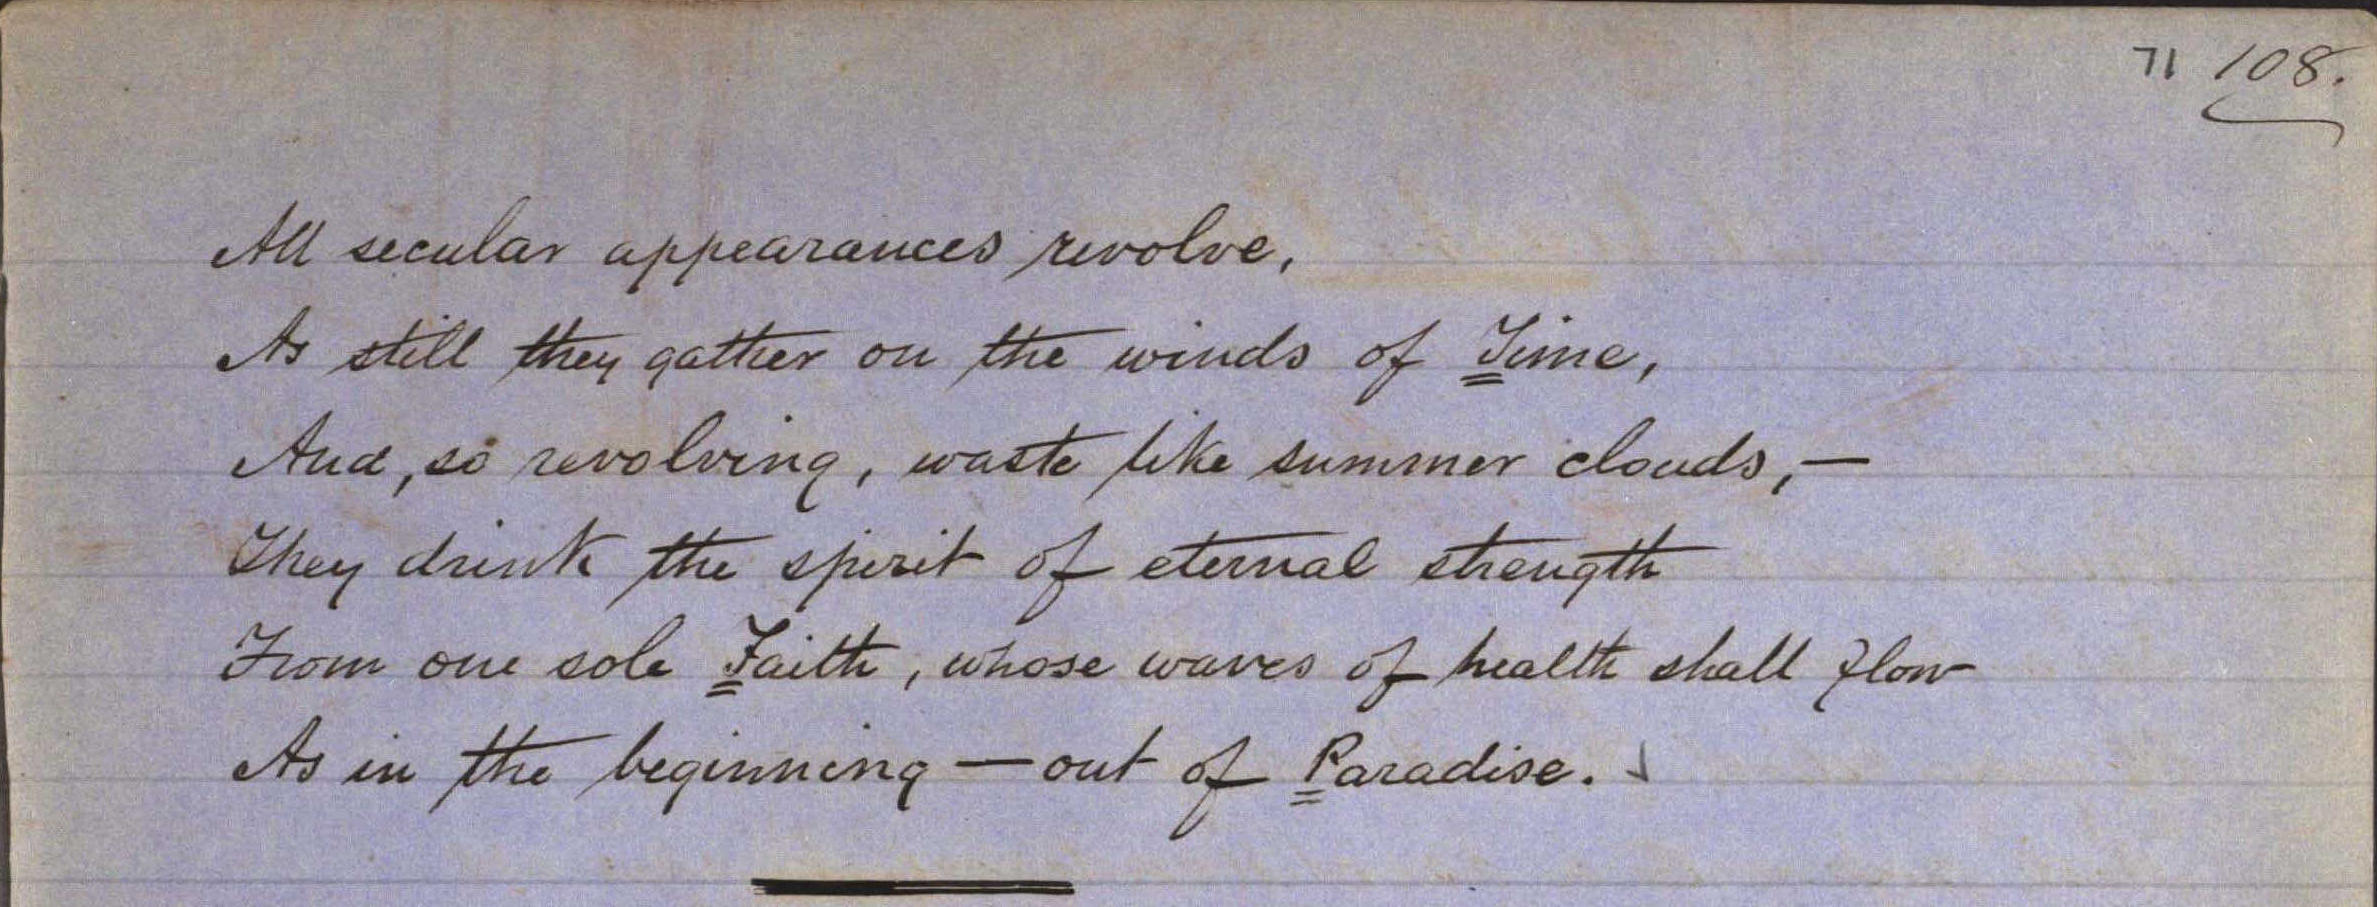 71 108.
All secular appearances revolve,
As still they gather on the winds of Time,
And, so revolving, waste like summer clouds,—
They drink the spirit of eternal strength
From one sole Faith, whose waves of health shall flow
As in the beginning — out of Paradise.